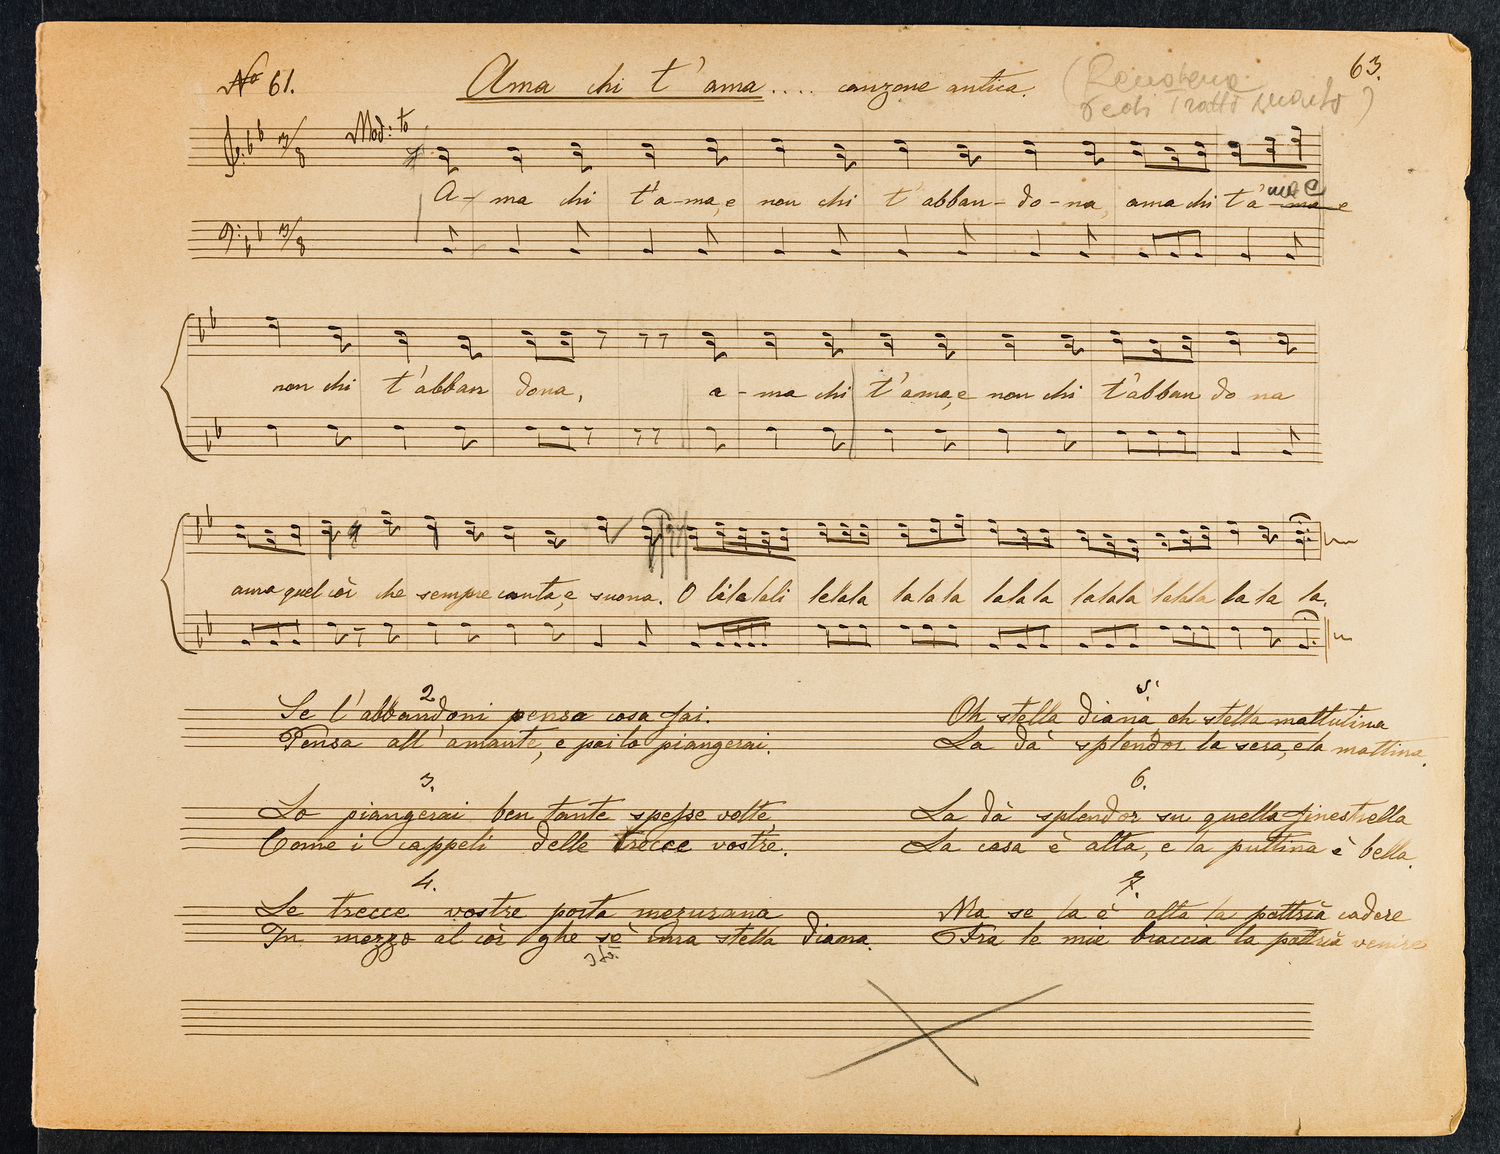 No 61.
Ama chi t'ama.... canzone antica.
63.
Mod:to
A-ma chi t'a-ma,e non chi t'abban-do-na, ama chi t'a-ma e
ma e
non chi t'abban dona, a-ma chi t'ama,e non chi t'abban do na
ama quel còr che sempre canta,e suona. O lilalali lelala la la la lala la lalala lalala la la la.
2.
Se l'abbandoni pensa cosa fai.
Pensa all'amante, e poi lo piangerai.
3.
Lo piangerai ben tante spesse volte,
Come i cappeli delle trecce vostre.
4.
Le trecce vostre porta mezurana
In mezzo al còr ghe sè una stella diana.
5.
Oh stella diana oh stella mattutina
La dà splendor la sera, e la mattina.
6.
La dà splendor su quella finestrella
La casa è alta, e la puttina è bella.
7.
Ma se la è alta la pottrià cadere
Fra le mie braccia la pottrià venire